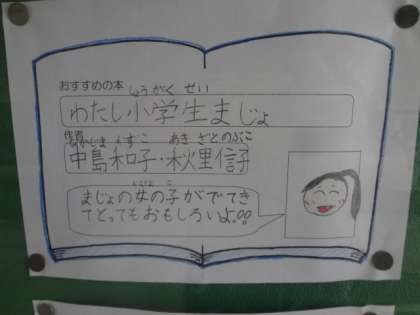 おすすめの本
しょうがくせい
わたし小学生まじょ
作者
なかしま かずこ あきざとのぶこ
中島和子・秋里信子
おんな こ
まじょの女の子がでてき
てとってもおもしろいよ!!